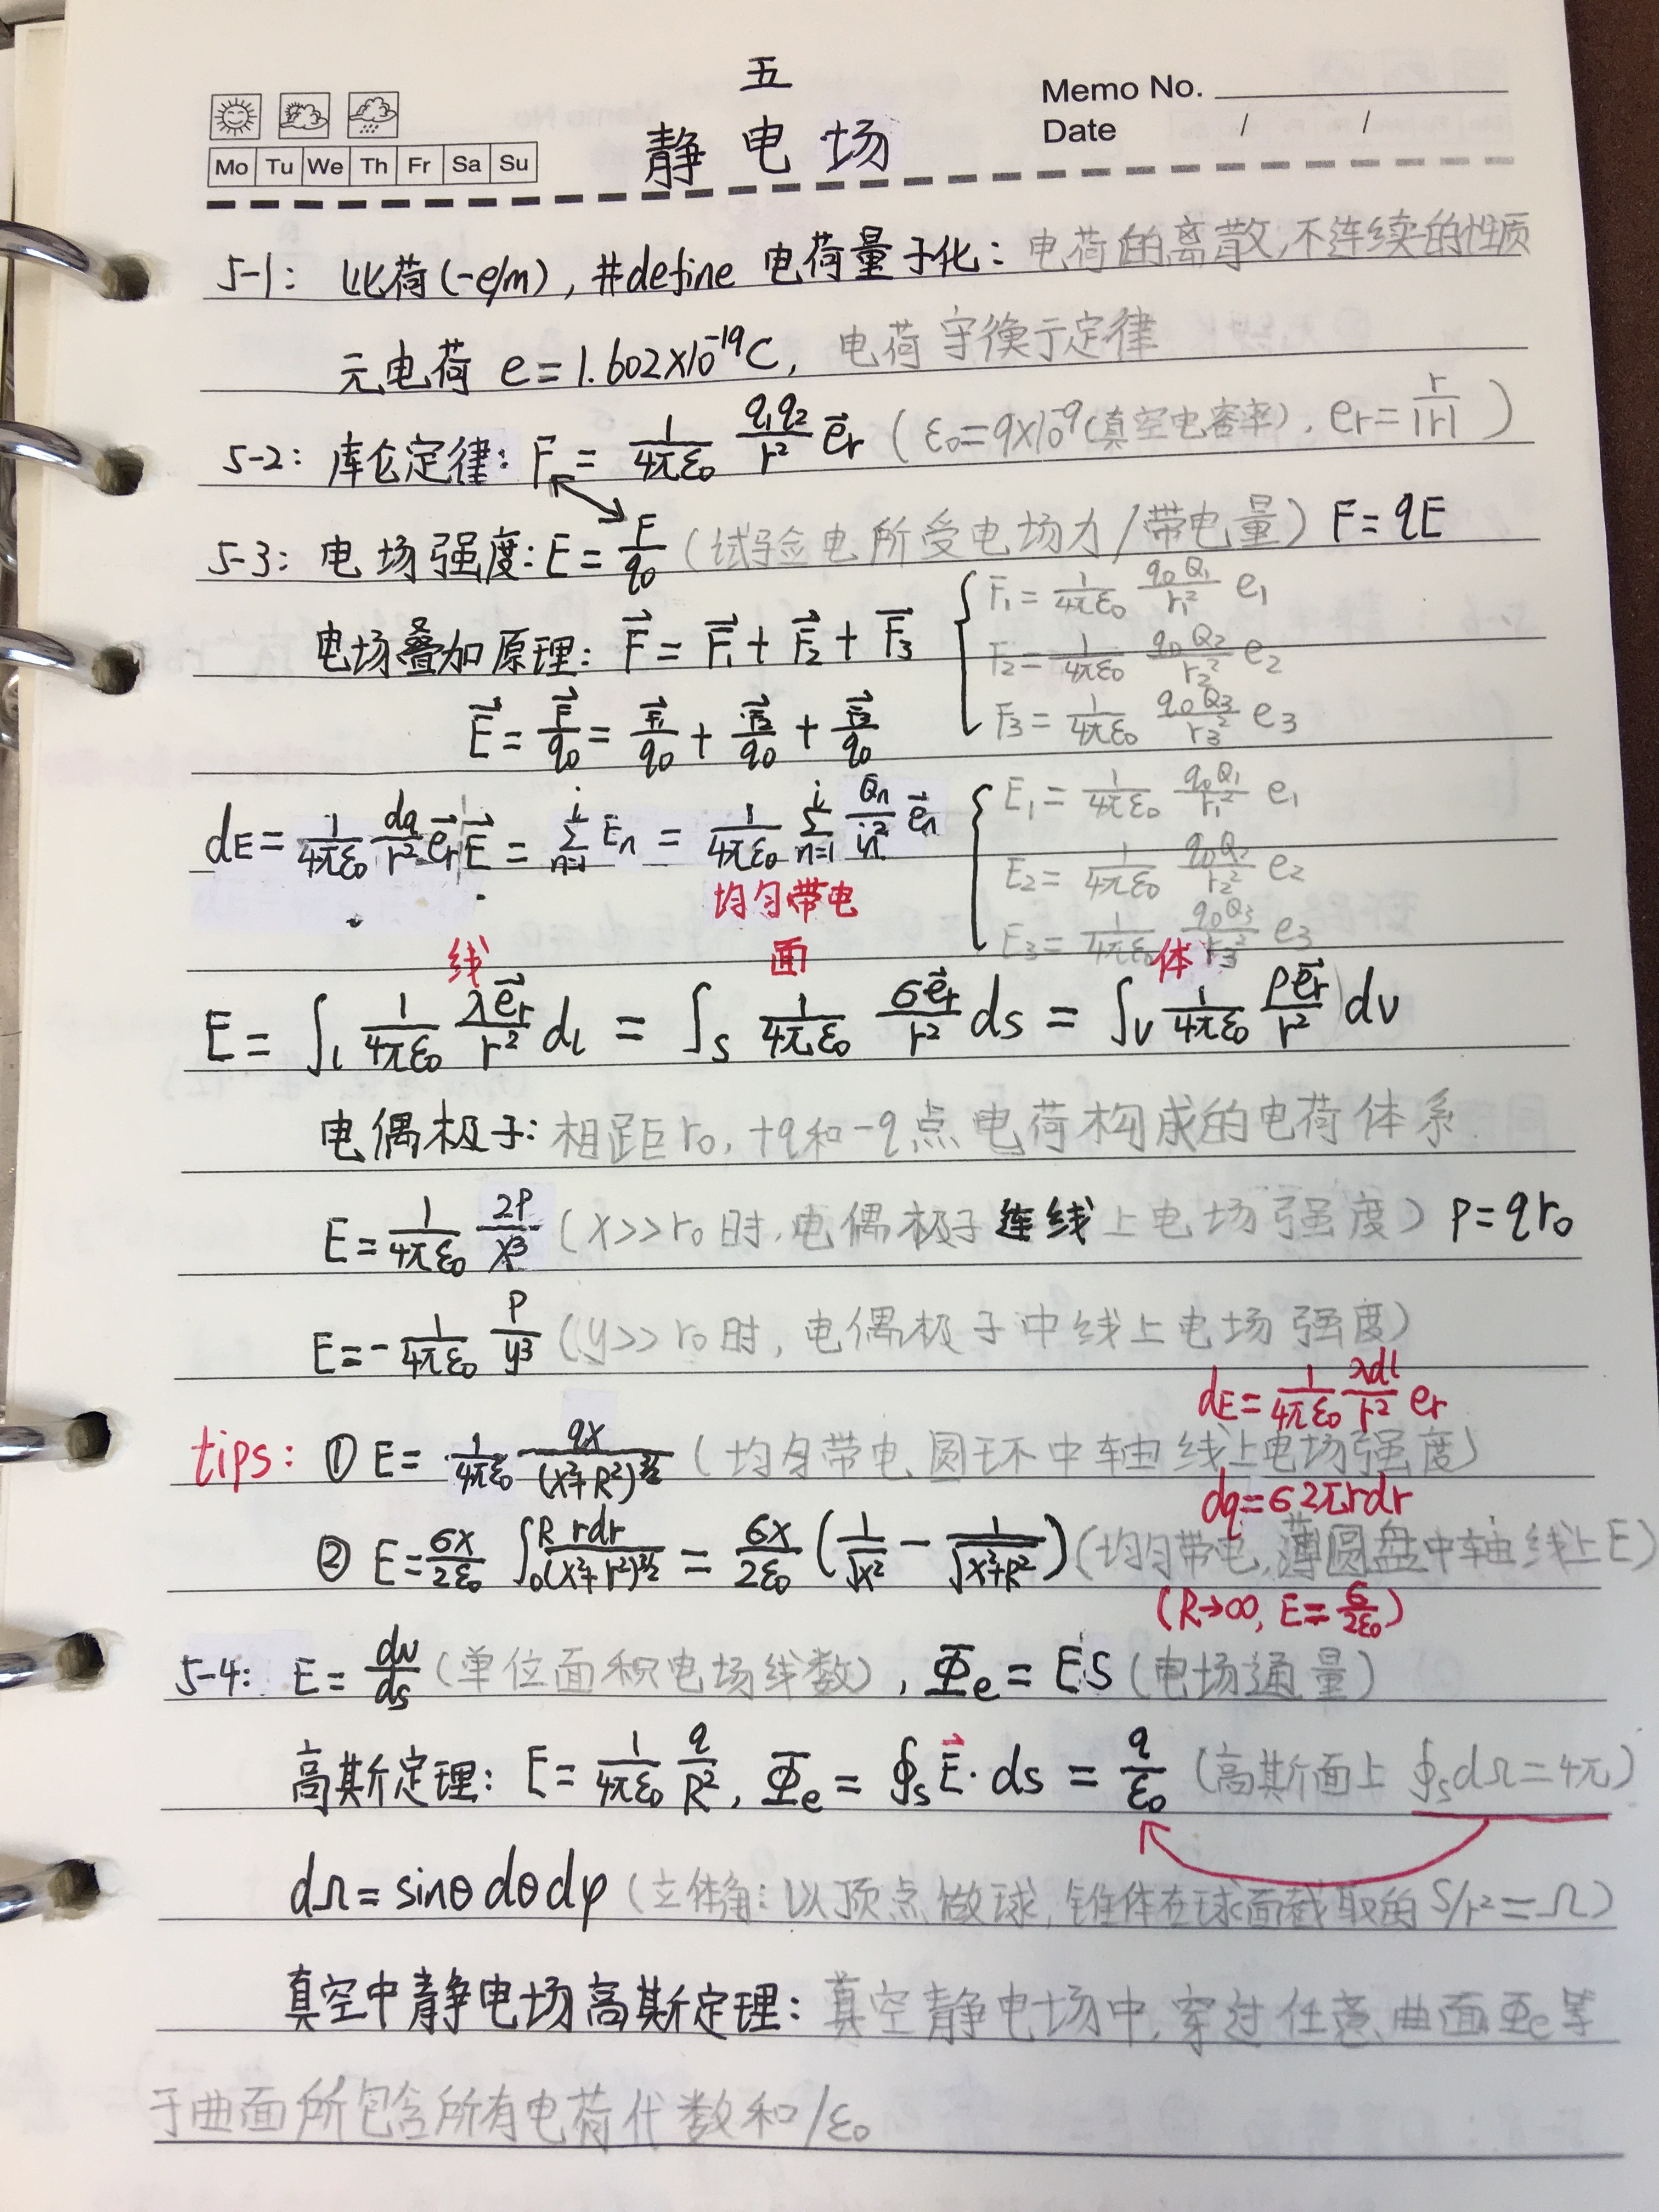 五
静电场
Memo No.
Date / /
Mo Tu We Th Fr Sa Su
5-1: 比荷(-e/m), #define 电荷量子化: 电荷的离散,不连续的性质
元电荷 e=1.602×10⁻¹⁹C, 电荷守衡定律
5-2: 库仑定律: F = 1/4πε₀ q₁q₂/r² e⃗r (ε₀=9×10⁻⁹(真空电容率), er = r/|r|)
5-3: 电场强度: E = F/q₀ (试验电所受电场力/带电量) F=qE
电场叠加原理: F⃗ = F⃗₁ + F⃗₂ + F⃗₃
F₁ = 1/4πε₀ q₀Q₁/r₁² e₁
F₂ = 1/4πε₀ q₀Q₂/r₂² e₂
F₃ = 1/4πε₀ q₀Q₃/r₃² e₃
E⃗ = F⃗/q₀ = F⃗₁/q₀ + F⃗₂/q₀ + F⃗₃/q₀
dE = 1/4πε₀ dq/r² e⃗r
E⃗ = Σⁱₙ₌₁ Eₙ = 1/4πε₀ Σⁱₙ₌₁ Qₙ/ e⃗ₙ
E₁ = 1/4πε₀ q₀Q₁/r₁² e₁
E₂ = 1/4πε₀ q₀Q₂/r₂² e₂
E₃ = 1/4πε₀ q₀Q₃/r₃² e₃
均匀带电
线 面 体
E = ∫l 1/4πε₀ λe⃗r/r² dl = ∫s 1/4πε₀ σe⃗r/r² ds = ∫v 1/4πε₀ ρe⃗r/r² dv
电偶极子: 相距r₀, +q和-q点电荷构成的电荷体系
E = 1/4πε₀ 2P/x³ (x>>r₀时,电偶极子连线上电场强度) P=qr₀
E = - 1/4πε₀ P/y³ (y>>r₀时, 电偶极子中线上电场强度)
dE = 1/4πε₀ λdl/r² er
tips: ① E = 1/4πε₀ qx/(x²+R²)^3/2 (均匀带电圆环中轴线上电场强度)
dq=σ2πrdr
② E = σx/2ε₀ ∫₀ᴿ rdr/(x²+r²)^3/2 = σx/2ε₀ (1/√x² - 1/√x²+R²) (均匀带电,薄圆盘中轴线上E)
(R→∞, E = σ/2ε₀)
5-4: E = dN/ds (单位面积电场线数), Φe = ES (电场通量)
高斯定理: E = 1/4πε₀ q/R², Φe = ∮s E⃗·ds = q/ε₀ (高斯面上 ∮s dΩ=4π)
dΩ = sinθ dθ dφ (立体角: 以顶点做球, 锥体在球面截取的 S/r²=Ω)
真空中静电场高斯定理: 真空静电场中, 穿过任意曲面Φe等
于曲面所包含所有电荷代数和/ε₀